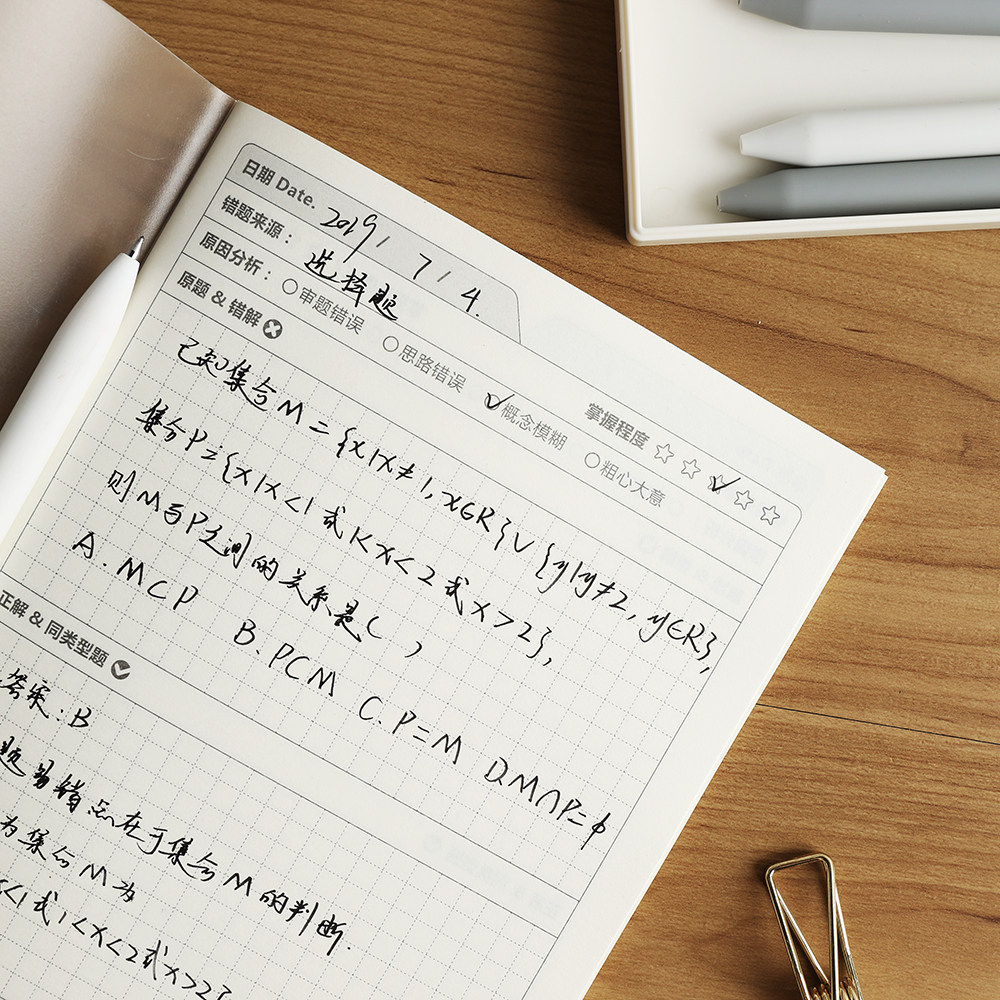 日期 Date. 2019 / 7 / 4.
错题来源： 选择题
原因分析： ○审题错误 ○思路错误 ✓概念模糊 ○粗心大意
掌握程度 ☆☆☆☆☆
原题 & 错解
已知集合M={x|x≠1,x∈R}∪{y|y≠2,y∈R},
集合P={x|x<1或1<x<2或x>2},
则M与P之间的关系是( )
A.M⊂P B.P⊂M C.P=M D.M∩P=ϕ
正解 & 同类型题
答案:B
题易错点在于集合M的判断.
为集合M为
x<1或1<x<2或x>2}